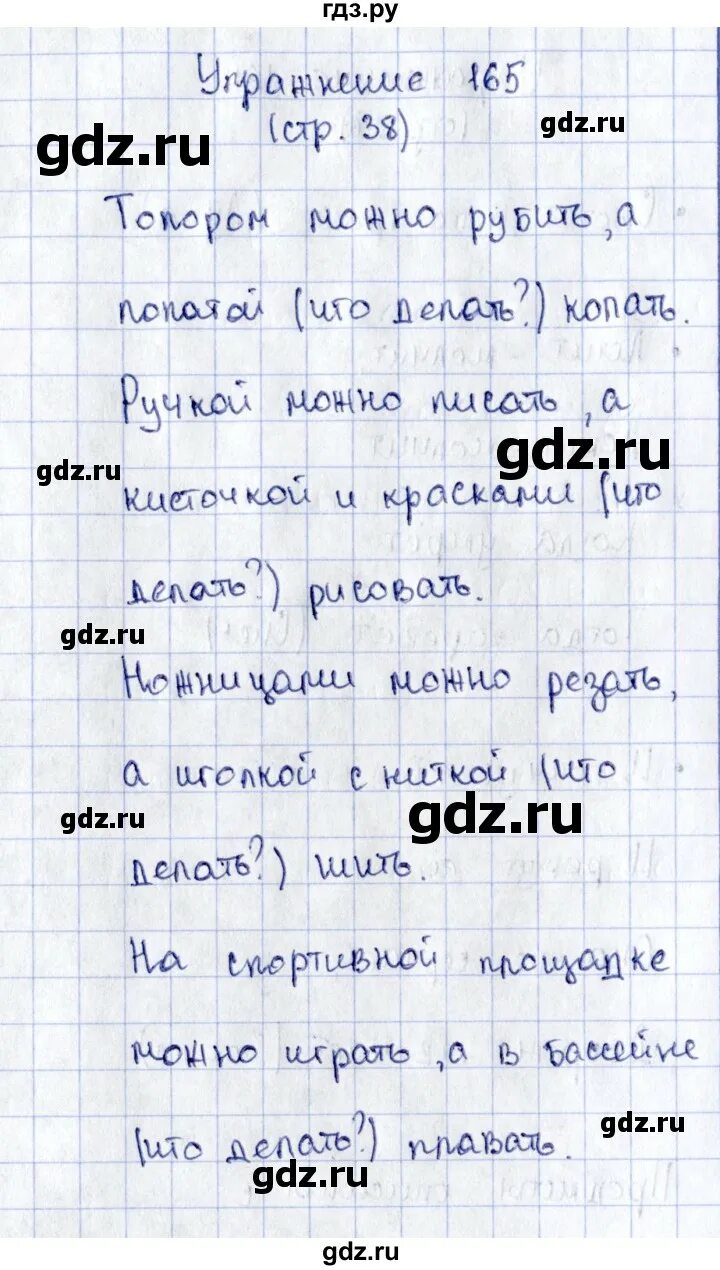 гдз.ру
Упражнение 165
gdz.ru
gdz.ru
(стр. 38)
Топором можно рубить, а
лопатой (что делать?) копать.
Ручкой можно писать, а
gdz.ru
gdz.ru
кисточкой и красками (что
делать?) рисовать.
gdz.ru
Ножницами можно резать,
а иголкой с ниткой (что
gdz.ru
gdz.ru
делать?) шить.
На спортивной площадке
можно играть, а в бассейне
gdz.ru
(что делать?) плавать.
gdz.ru
gdz.ru